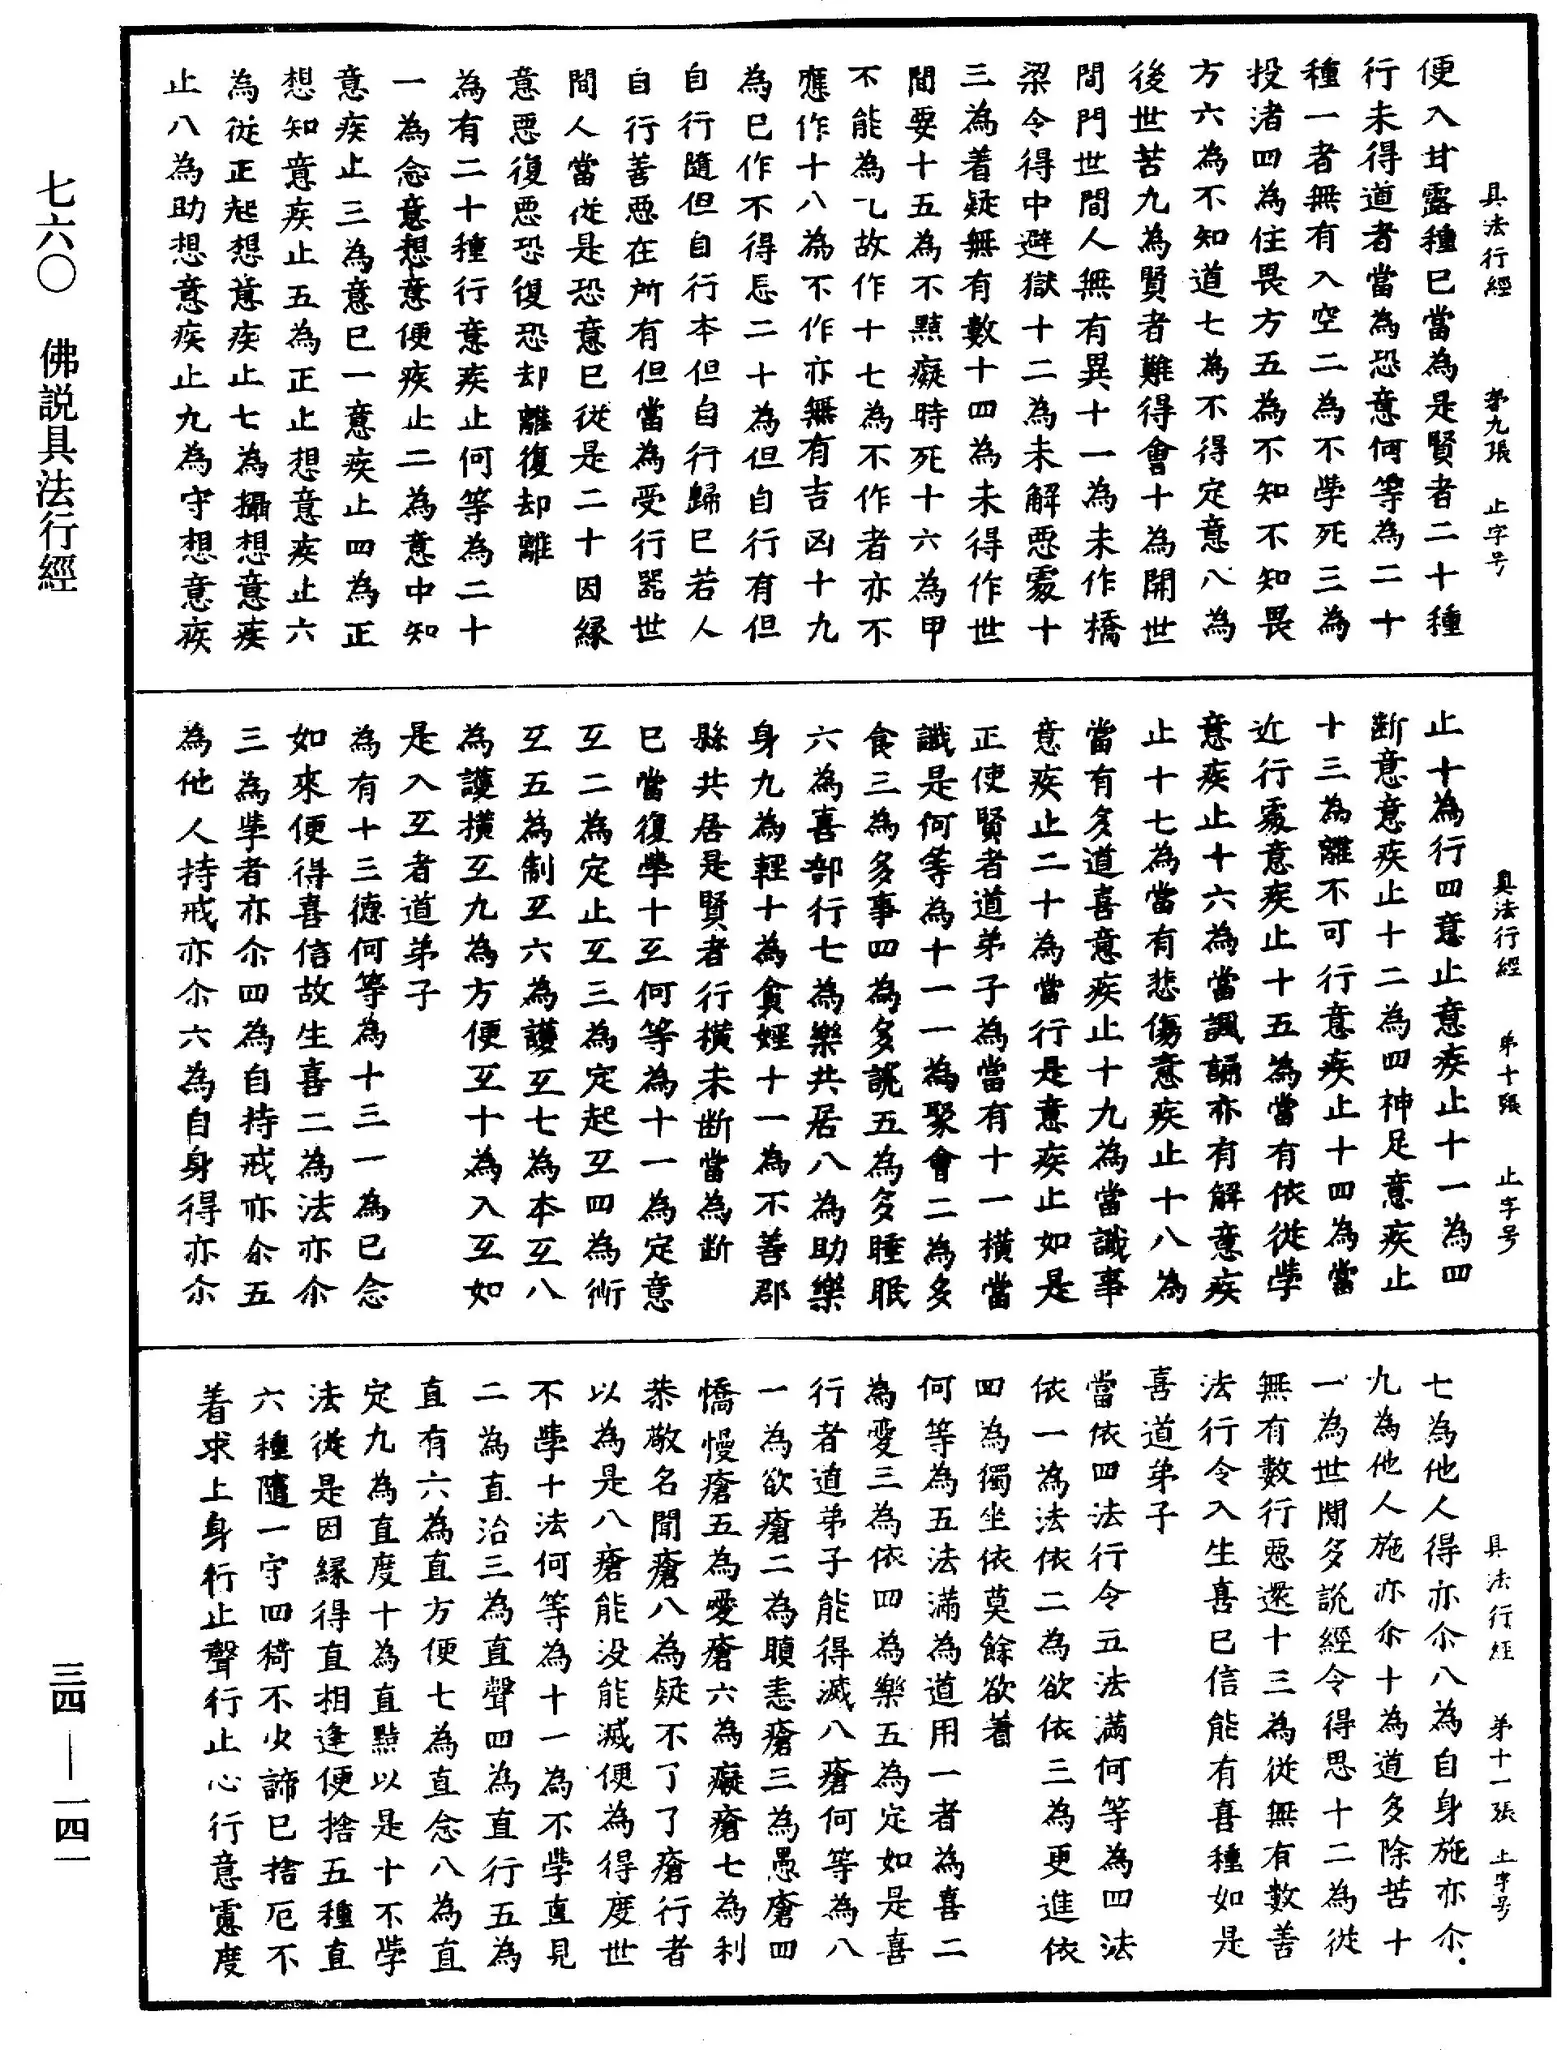 具法行經　第九張　止字号
便入甘露種已當為是賢者二十種
行未得道者當為恐意何等為二十
種一者無有入空二為不學死三為
投渚四為住畏方五為不知不知畏
方六為不知道七為不得定意八為
後世苦九為賢者難得會十為開世
間門世間人無有異十一為未作橋
梁令得中避獄十二為未解惡處十
三為着疑無有數十四為未得作世
間要十五為不點癡時死十六為甲
不能為乙故作十七為不作者亦不
應作十八為不作亦無有吉凶十九
為已作不得忘二十為但自行有但
自行隨但自行本但自行歸已若人
自行善惡在所有但當為受行器世
間人當從是恐意已從是二十因緣
意惡復惡恐復恐却離復却離
為有二十種行意疾止何等為二十
一為念意想意便疾止二為意中知
意疾止三為意已一意疾止四為正
想知意疾止五為正止想意疾止六
為從正起想意疾止七為攝想意疾
止八為助想意疾止九為守想意疾
具法行經　第十張　止字号
止十為行四意止意疾止十一為四
斷意意疾止十二為四神足意疾止
十三為離不可行意疾止十四為當
近行處意疾止十五為當有依從學
意疾止十六為當諷誦亦有解意疾
止十七為當有悲傷意疾止十八為
當有多道喜意疾止十九為當識事
意疾止二十為當行是意疾止如是
正使賢者道弟子為當有十一橫當
識是何等為十一一為聚會二為多
食三為多事四為多說五為多睡眠
六為喜部行七為樂共居八為助樂
身九為輕十為貪婬十一為不善郡
縣共居是賢者行橫未斷當為斷
已當復學十互何等為十一為定意
互二為定止互三為定起互四為術
互五為制互六為護互七為本互八
為護橫互九為方便互十為入互如
是入互者道弟子
為有十三德何等為十三一為已念
如來便得喜信故生喜二為法亦尒
三為學者亦尒四為自持戒亦尒五
為他人持戒亦尒六為自身得亦尒
具法行經　第十一張　止字号
七為他人得亦尒八為自身施亦尒
九為他人施亦尒十為道多除苦十
一為世間多說經令得思十二為從
無有數行惡還十三為從無有數善
法行令入生喜已信能有喜種如是
喜道弟子
當依四法行令五法滿何等為四法
依一為法依二為欲依三為更進依
四為獨坐依莫餘欲著
何等為五法滿為道用一者為喜二
為愛三為依四為樂五為定如是喜
行者道弟子能得滅八瘡何等為八
一為欲瘡二為瞋恚瘡三為愚瘡四
憍慢瘡五為愛瘡六為癡瘡七為利
恭敬名聞瘡八為疑不了了瘡行者
以為是八瘡能没能滅便為得度世
不學十法何等為十一為不學直見
二為直治三為直聲四為直行五為
直有六為直方便七為直念八為直
定九為直度十為直點以是十不學
法從是因緣得直相逢便捨五種直
六種隨一守四猗不火諦已捨厄不
着求上身行止聲行止心行意慮度
七六〇　佛説具法行經
三四—一四一